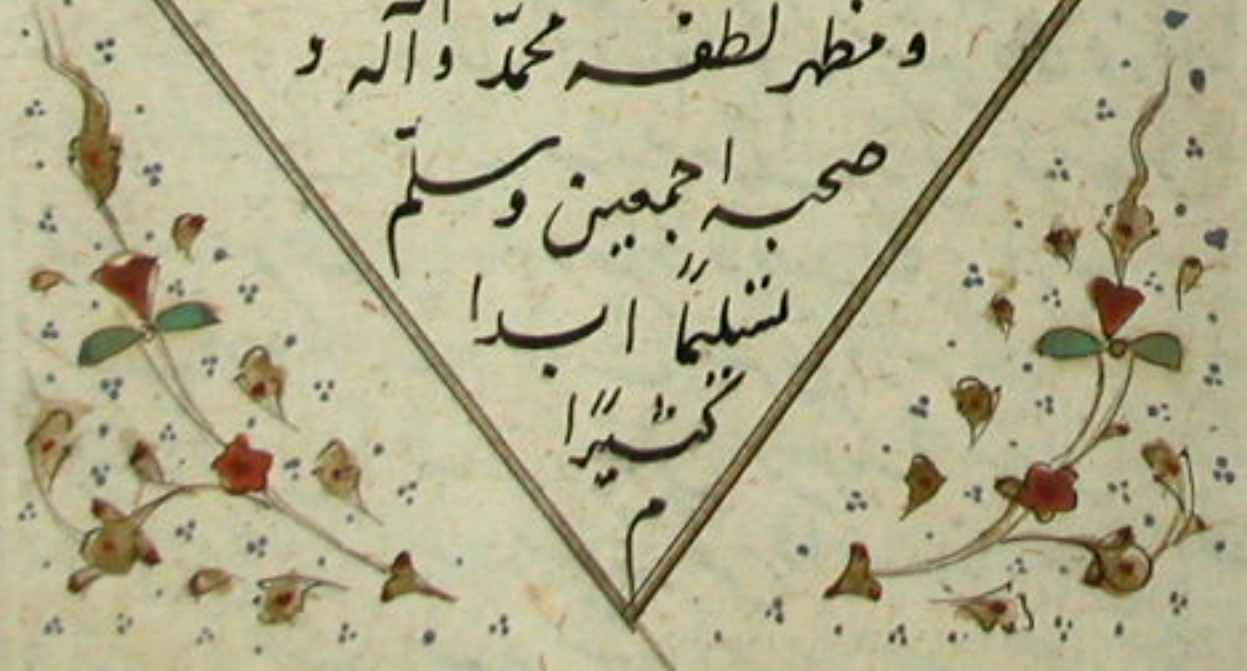 و مظهر لطفه محمّد و آله و
صحبه اجمعین و سلّم
تسلیمًا ابدا
کثیرًا
م